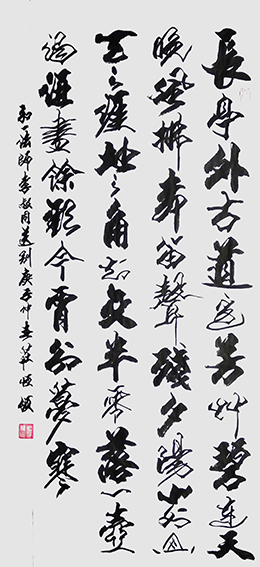 長亭外古道邊芳艸碧連天
晚風拂柳笛聲殘夕陽山外山
天之涯地之角知交半零落一壺
濁酒盡餘歡今宵別夢寒
弘一法師李叔同送別庚子仲春